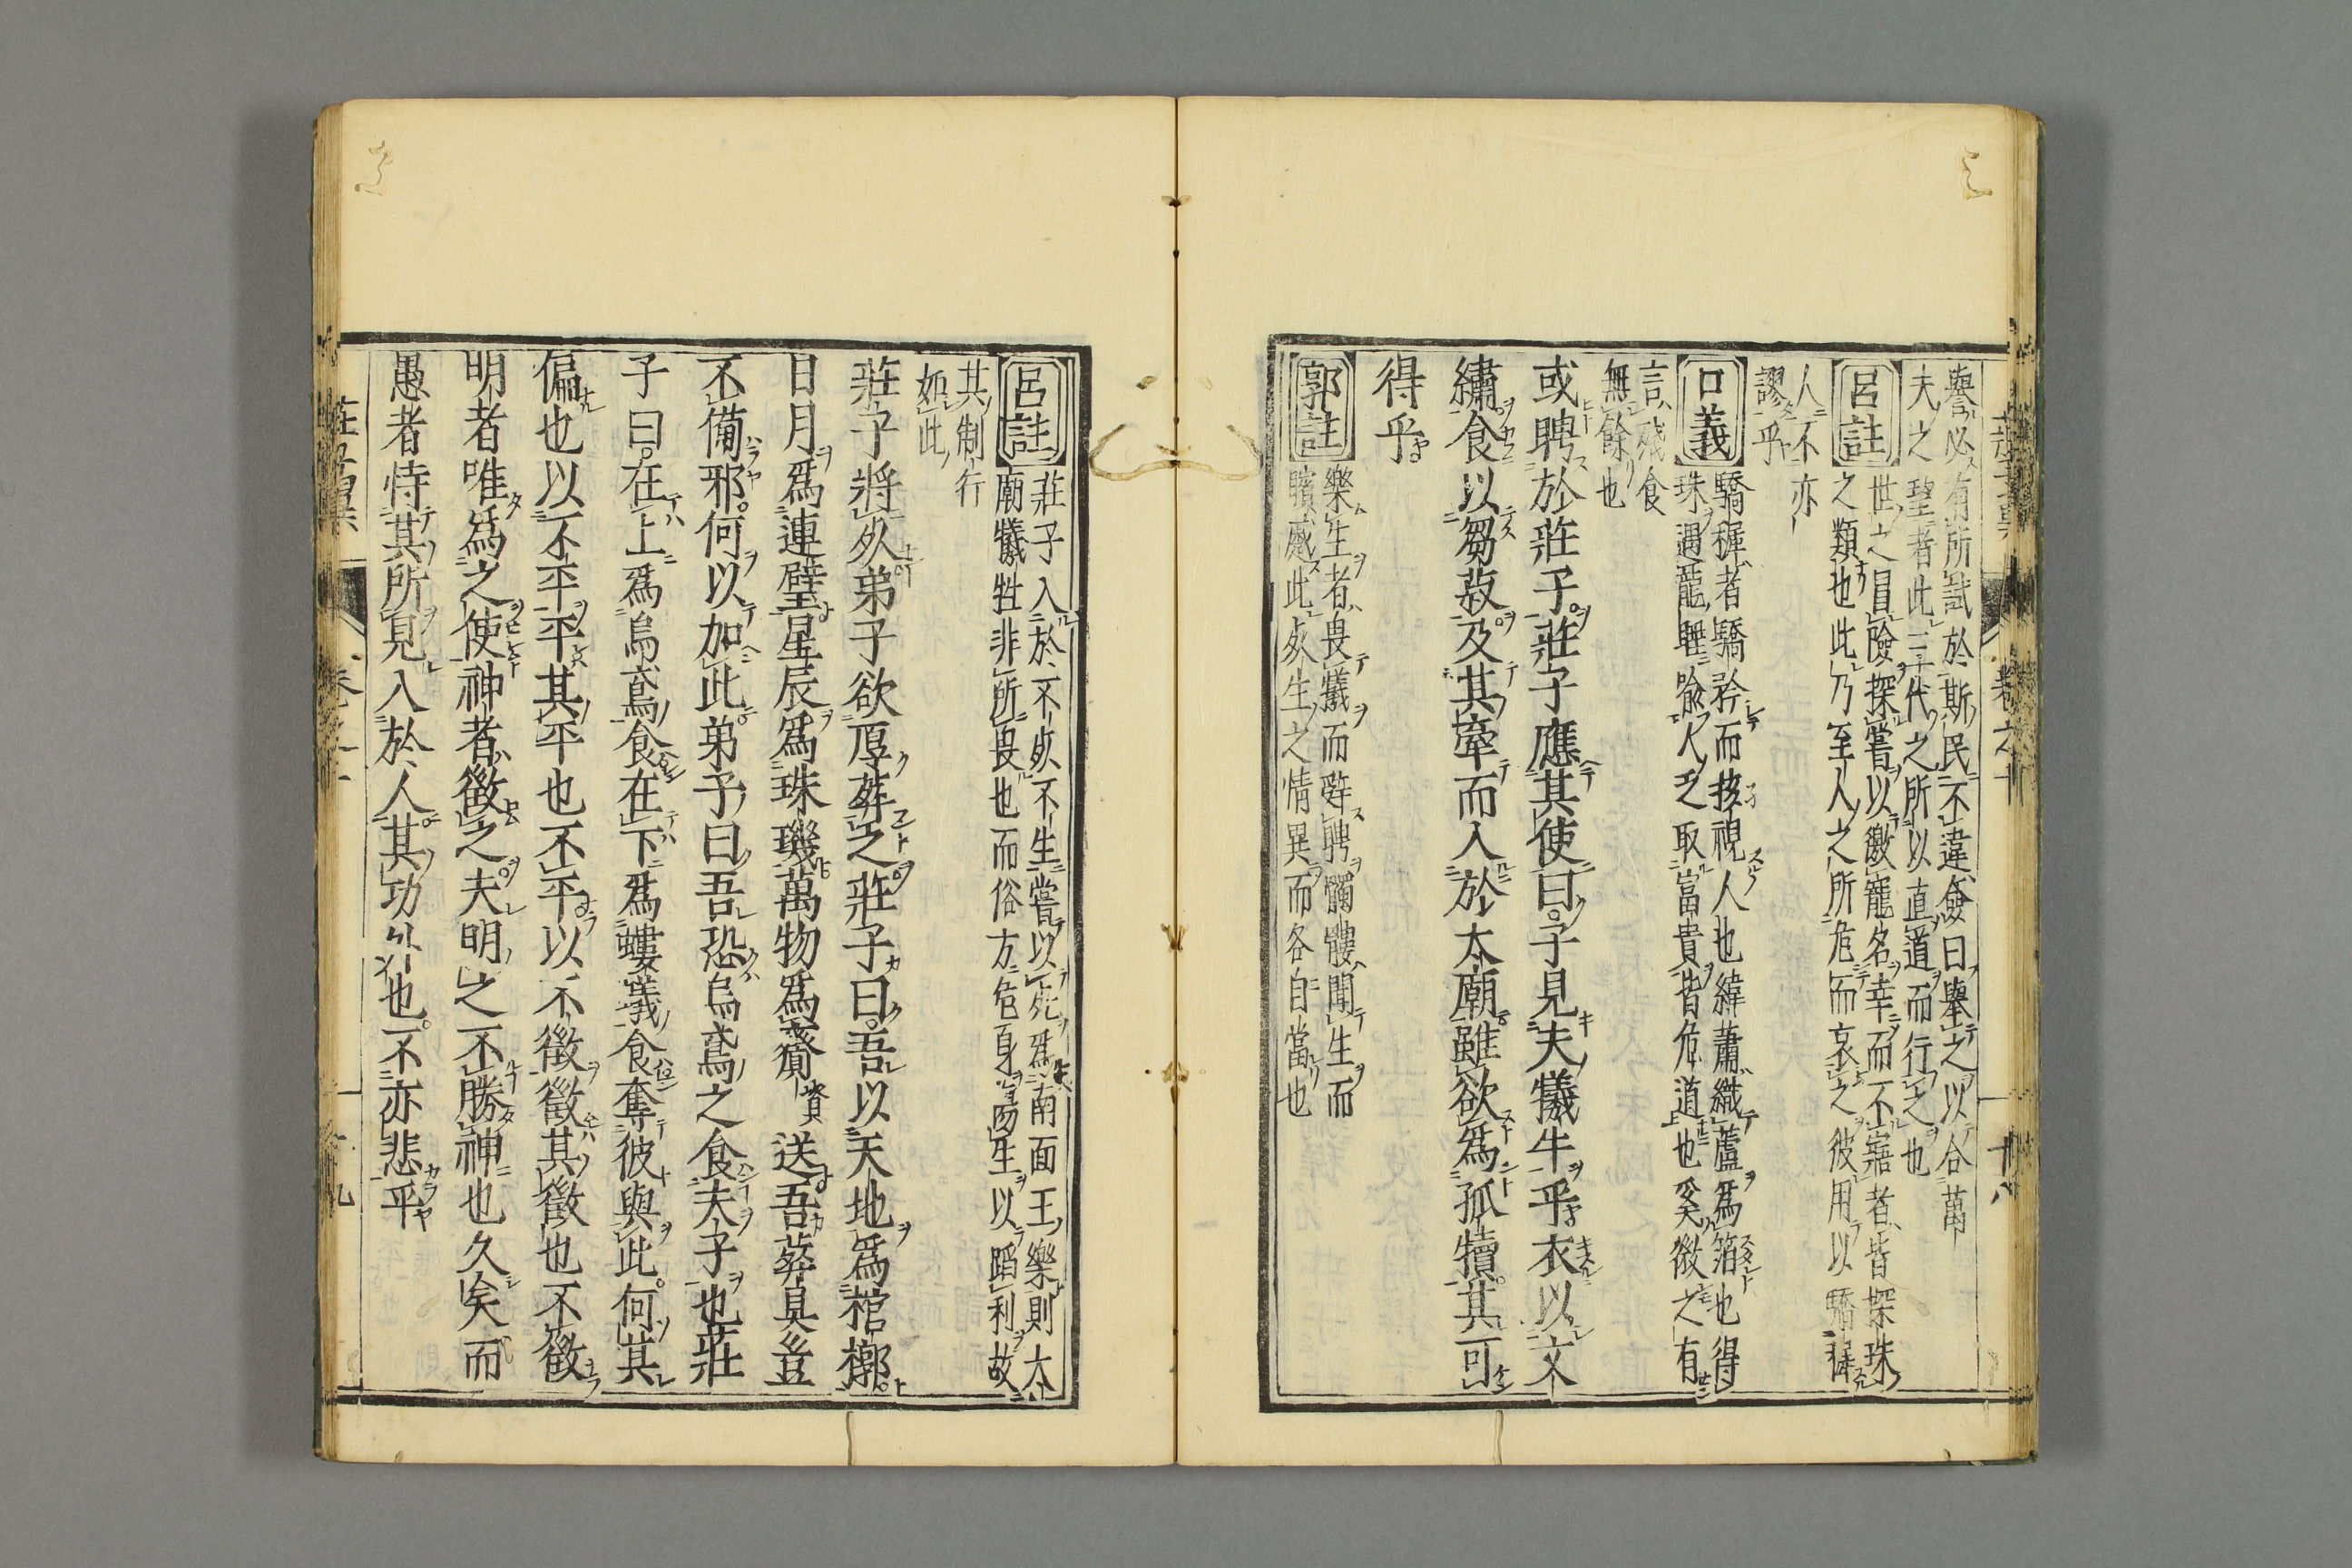 譽必有所試於斯民不違僉曰舉之以合萬
夫之望者此三代之所以直道而行之也
呂註
世之冒險探嘗以邀寵名幸而不寤者皆探珠
之類也此乃至人之所危而哀之彼用以驕穉
人不亦
謬乎
口義
驕穉者驕矜而孩視人也緯蕭織蘆爲箔也得
珠遇龍睡喩人之取富貴皆危道也奚微之有
言殘食
無餘也
或聘於莊子莊子應其使曰子見夫犧牛乎衣以文
繡食以芻菽及其牽而入於太廟雖欲爲孤犢其可
得乎
郭註
樂生者畏犧而辭聘髑髏聞生而
矉慼此死生之情異而各自當也
卷之十
十八
呂註
莊子入於不死不生嘗以死爲南面王樂則太
廟犧牲非所畏也而俗方危身傷生以蹈利故
其制行
如此
莊子將死弟子欲厚葬之莊子曰吾以天地爲棺槨
日月爲連璧星辰爲珠璣萬物爲齎送吾葬具豈
不備邪何以加此弟子曰吾恐烏鳶之食夫子也莊
子曰在上爲烏鳶食在下爲螻蟻食奪彼與此何其
偏也以不平平其平也不平以不徵徵其徵也不徵
明者唯爲之使神者徵之夫明之不勝神也久矣而
愚者恃其所見入於人其功外也不亦悲乎